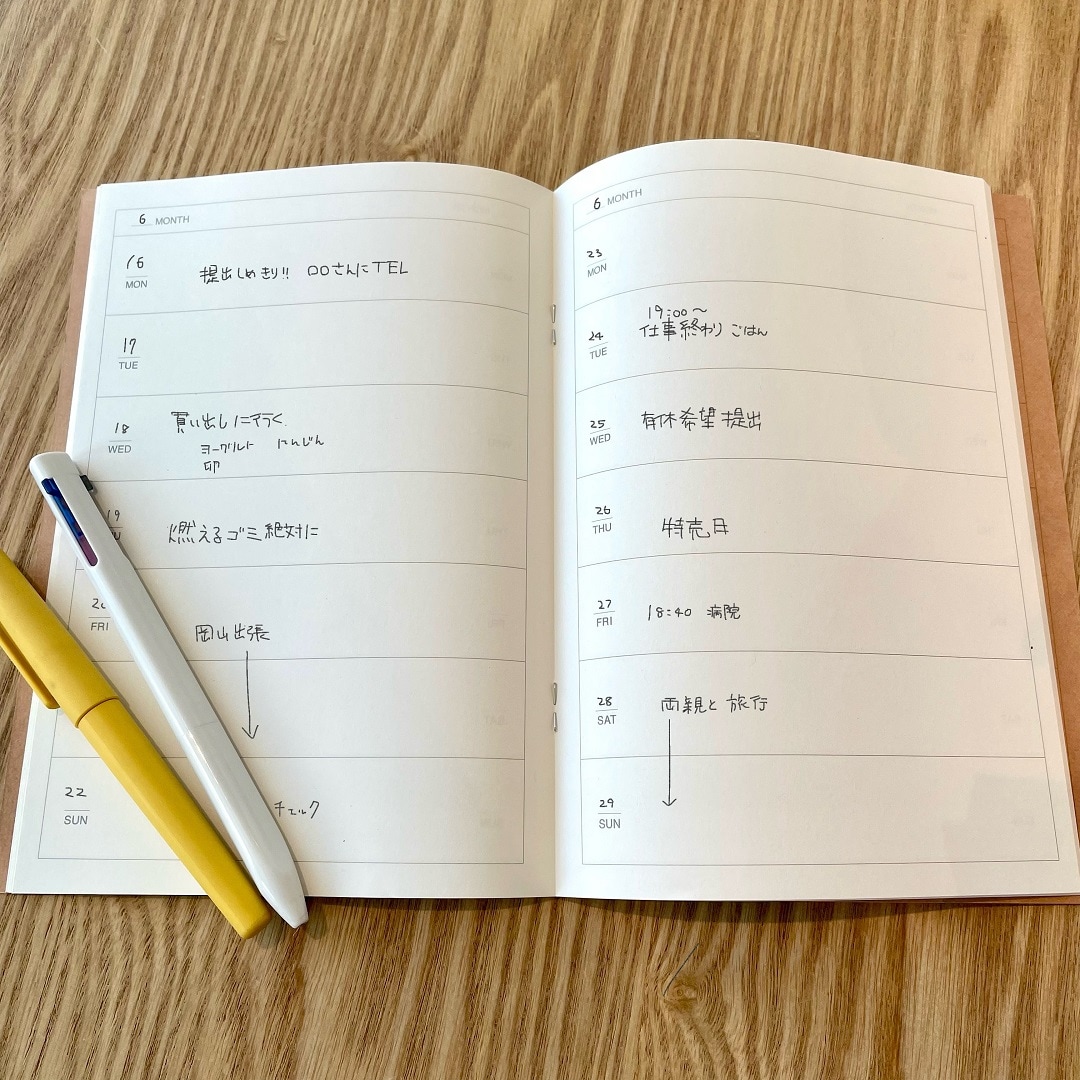 6 MONTH
16
MON
提出しめきり!! ロロさんにTEL
17
TUE
18
WED
買い出しに行く
ヨーグルト にんじん
卵
19
燃えるゴミ絶対に
FRI
岡山出張
22
SUN
チェック
6 MONTH
23
MON
24
TUE
19:00〜
仕事終わり ごはん
25
WED
有休希望提出
26
THU
特売日
27
FRI
18:40 病院
28
SAT
両親と旅行
29
SUN